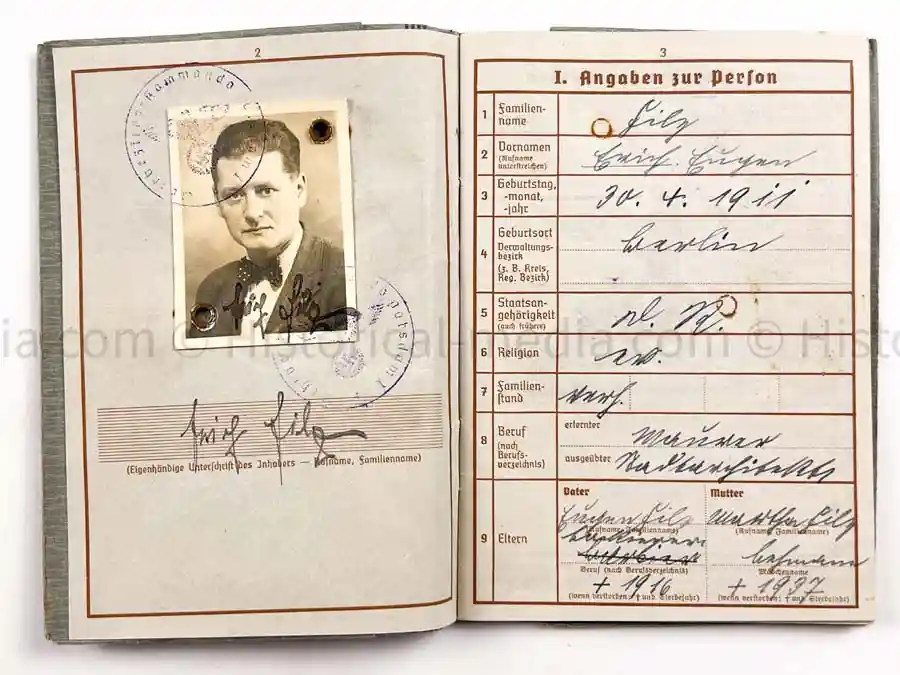 2
Erich Filz
Erich Filz
(Eigenhändige Unterschrift des Inhabers — Rufname, Familienname)
3
I. Angaben zur Person
1 Familien-
name
Filz
2 Vornamen
(Rufname
unterstreichen)
Erich. Eugen
3 Geburtstag,
-monat,
-jahr
30. 4. 1911
4 Geburtsort
Verwaltungs-
bezirk
(z. B. Kreis,
Reg. Bezirk)
Berlin
5 Staatsan-
gehörigkeit
(auch frühere)
6 Religion
ev.
7 Familien-
stand
verh.
8 Beruf
(nach
Berufs-
verzeichnis)
erlernter
Maurer
ausgeübter
Stadtarchitekt
9 Eltern
Vater
Eugen Filz
(Rufname, Familienname)
Beruf (nach Berufsverzeichnis)
+ 1916
(wenn verstorben: † und Sterbejahr)
Mutter
Martha Filz
(Rufname, Familienname)
Mädchenname
+ 1937
(wenn verstorben: † und Sterbejahr)
ia.com © Historical-media.com © Histo